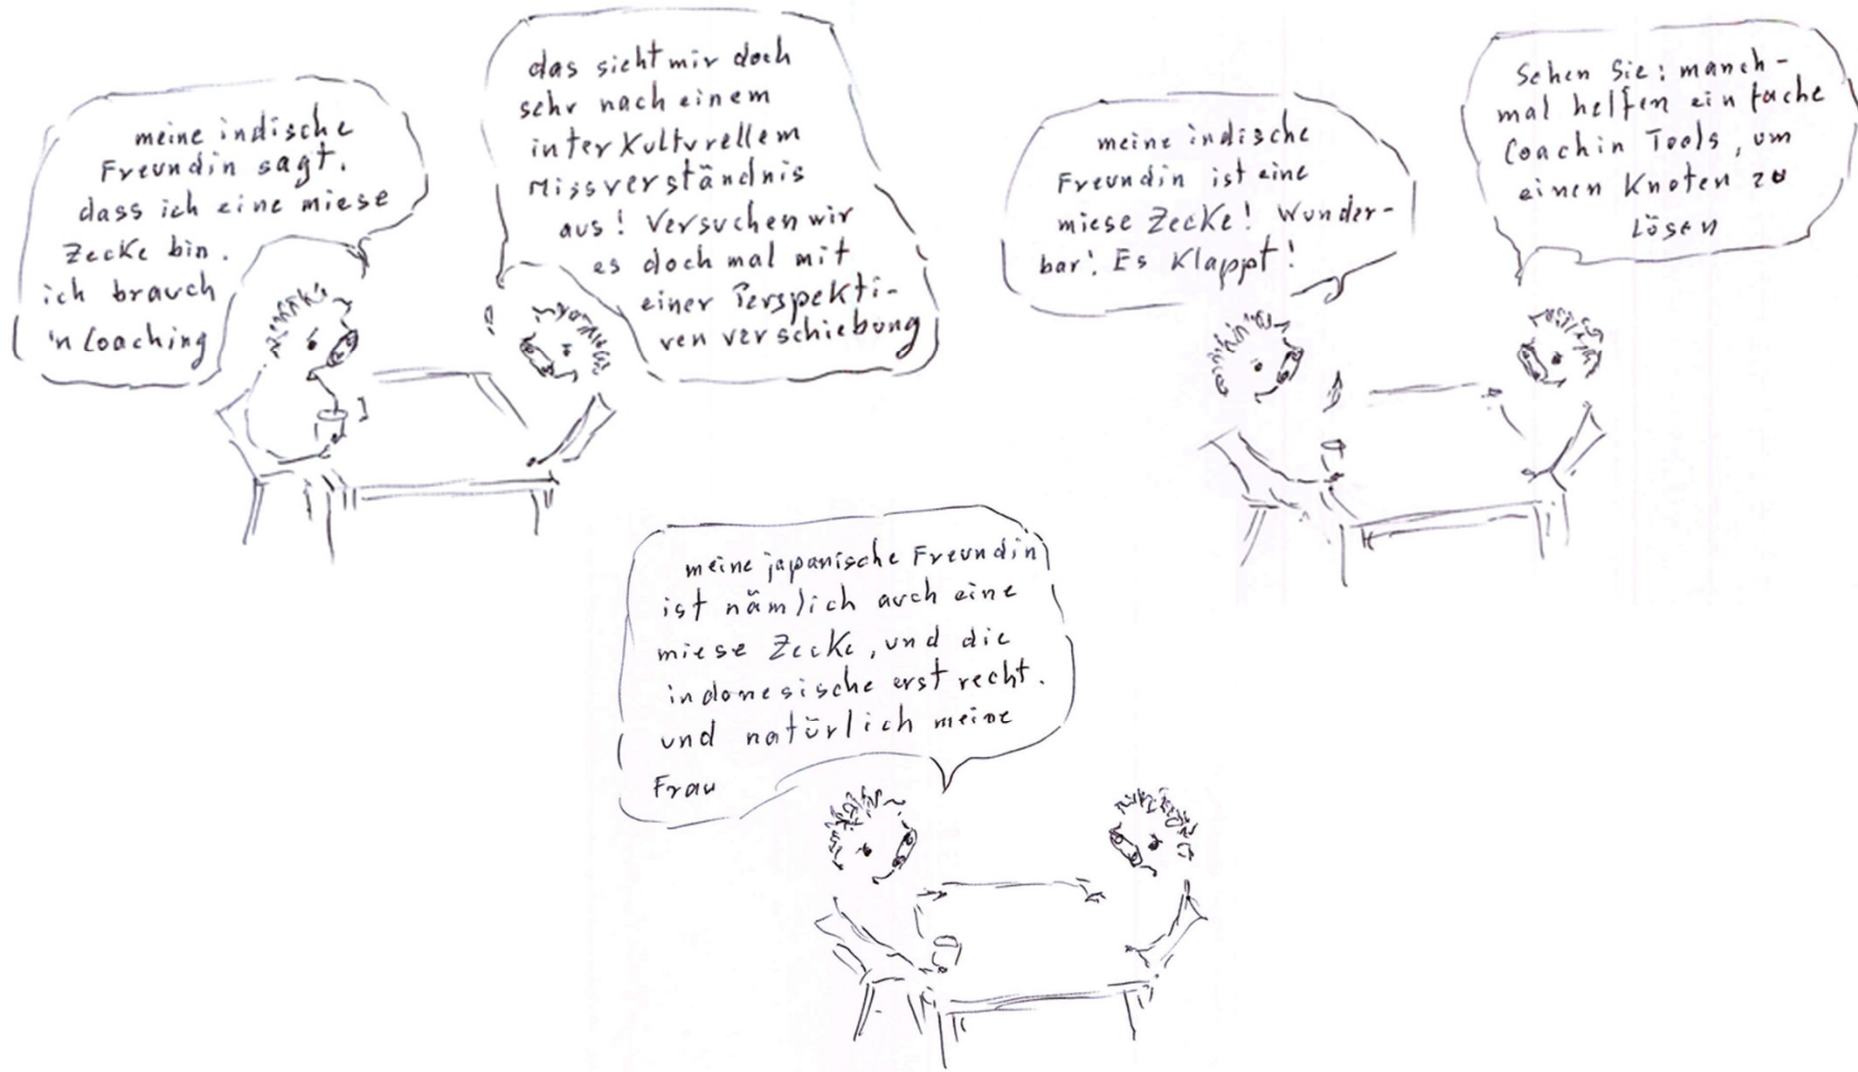 meine indische
Freundin sagt.
dass ich eine miese
Zecke bin.
ich brauch
'n Coaching
das sieht mir doch
sehr nach einem
interkulturellem
Missverständnis
aus! Versuchen wir
es doch mal mit
einer Perspekti-
venverschiebung
meine indische
Freundin ist eine
miese Zecke! Wunder-
bar! Es klappt!
Sehen Sie: manch-
mal helfen einfache
Coachin Tools, um
einen Knoten zu
lösen
meine japanische Freundin
ist nämlich auch eine
miese Zecke, und die
indonesische erst recht.
und natürlich meine
Frau